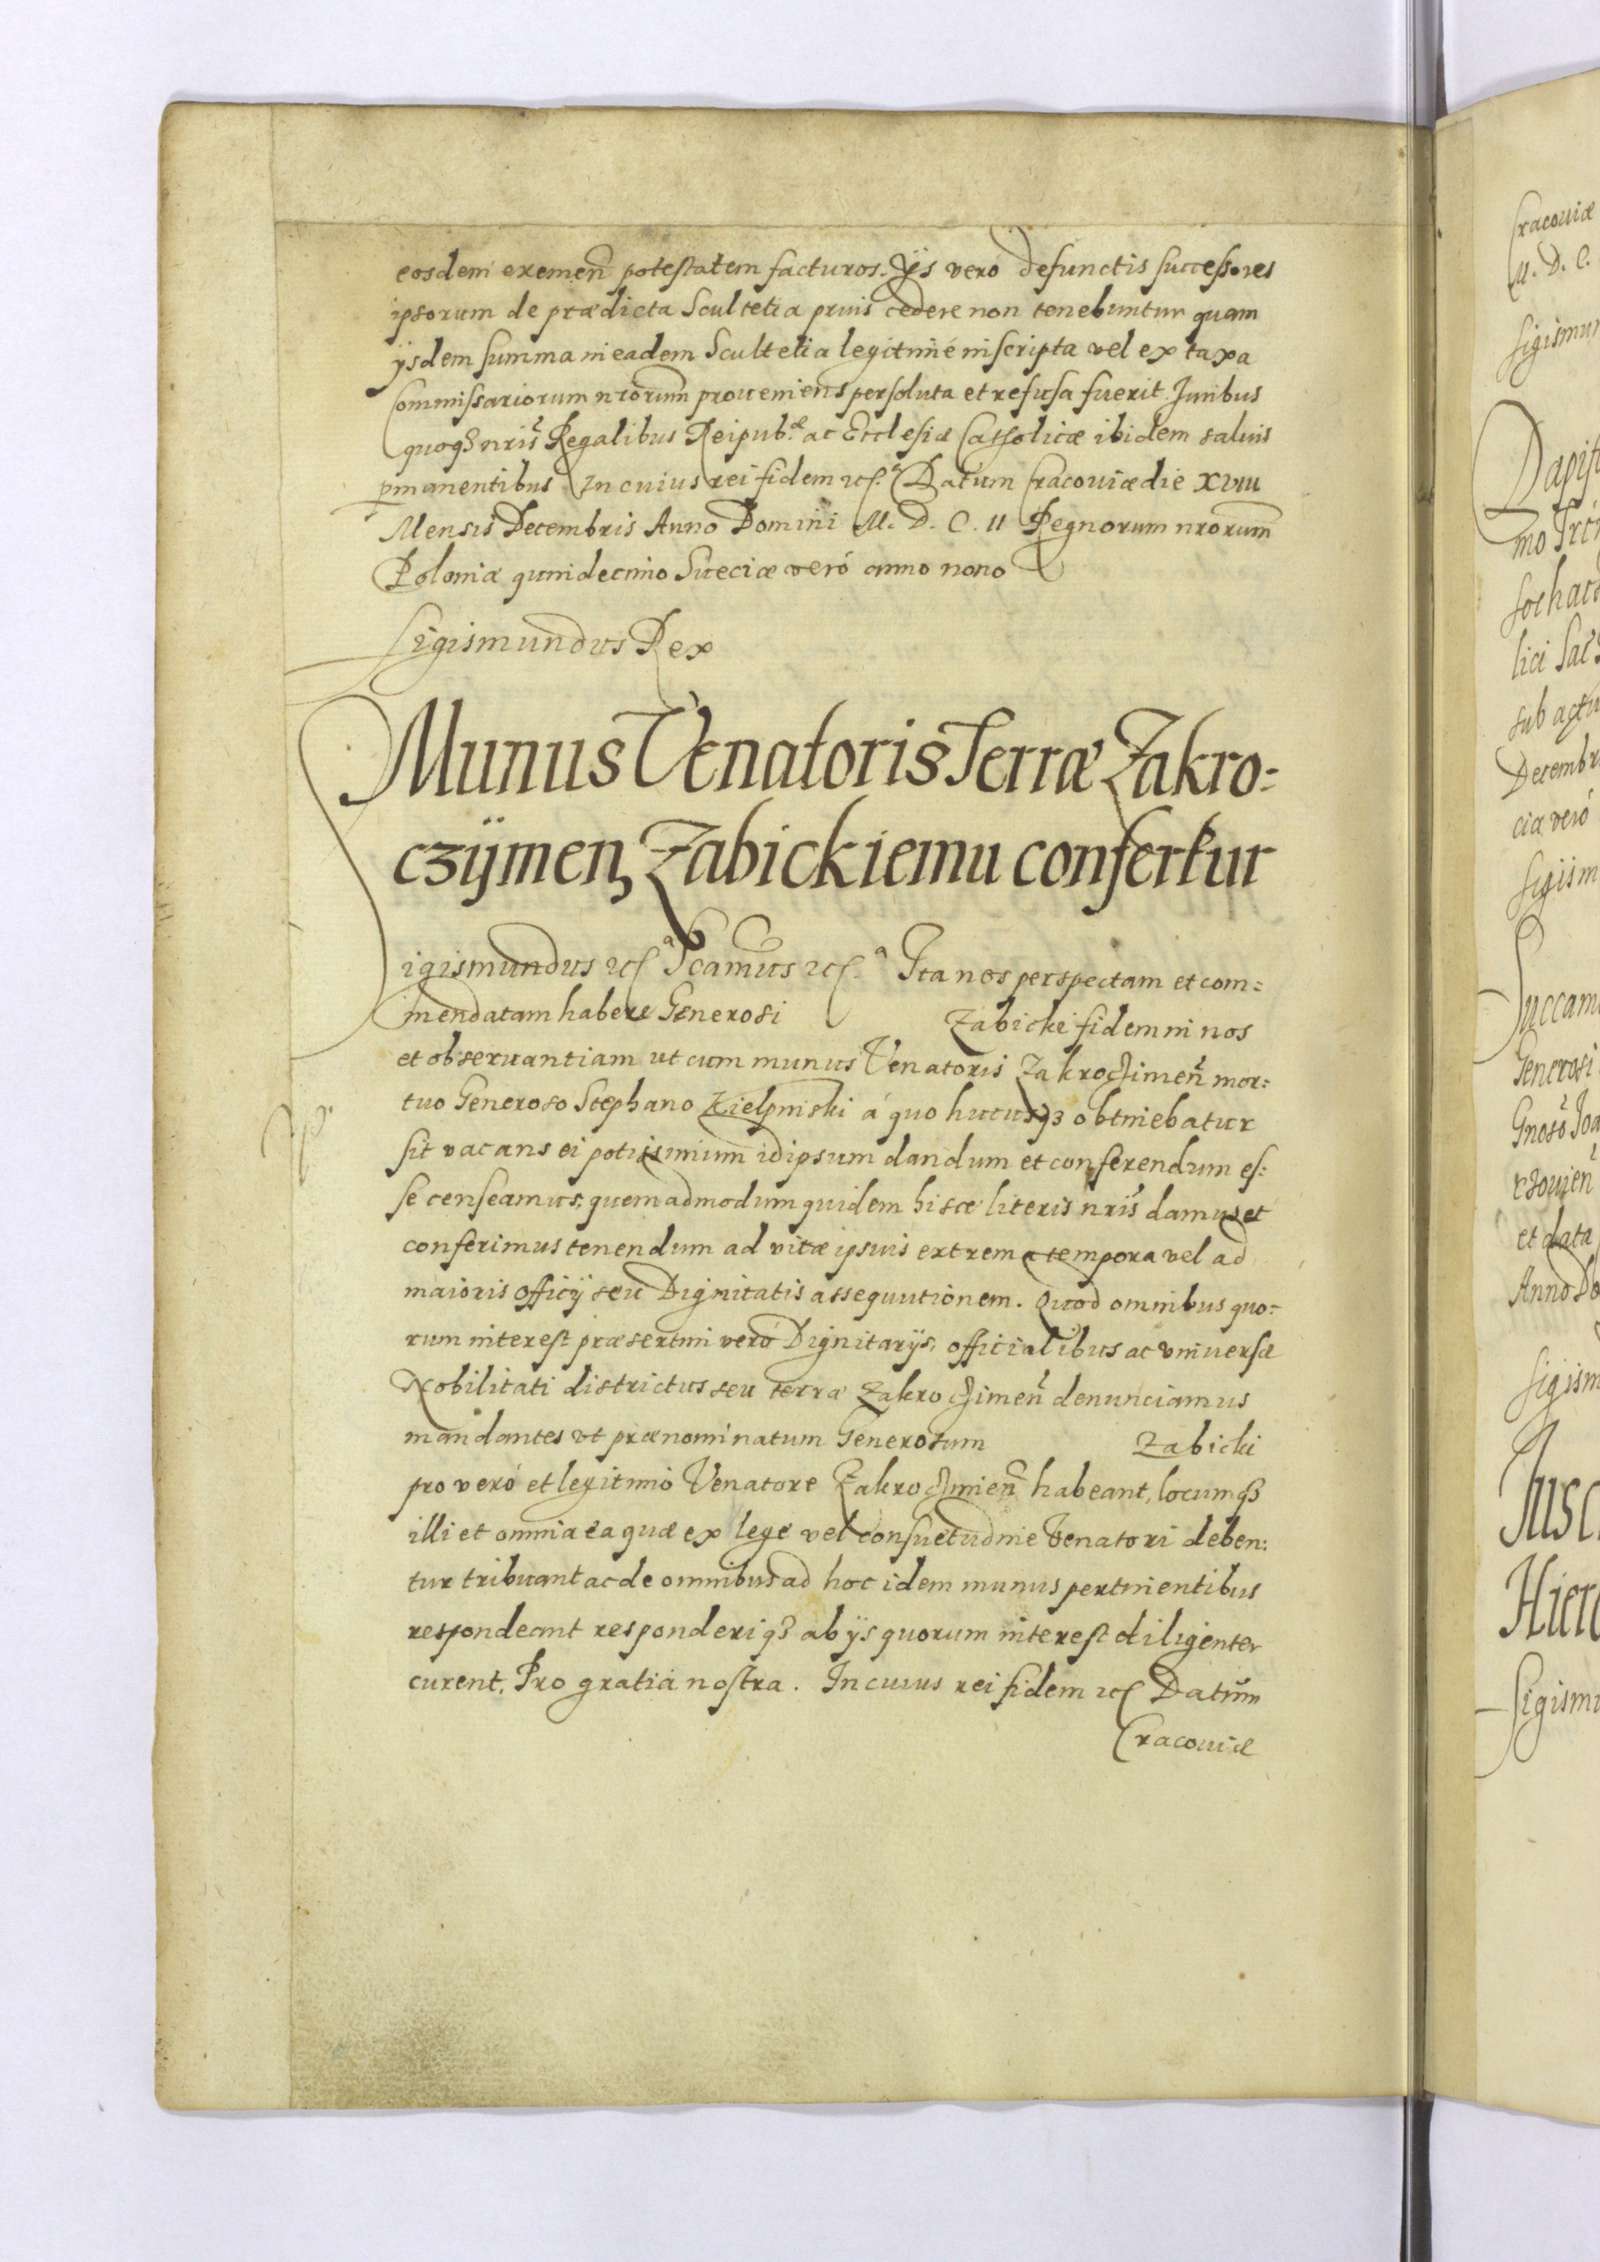 eosdem eximen̄ potestatem facturos. Ijs vero defunctis successores
ipsorum de prædicta Scultetia prius cedere non tenebuntur quam
ijsdem summa in eadem Scultetia legitimé inscripta vel ex taxa
Commissariorum nrorum proueniens persoluta et refusa fuerit. Juribus
quoq3 nris Regalibus Reipub.æ ac Ecclesiæ Catholicæ ibidem saluis
pmanentibus In cuius rei fidem etc. Datum Cracouiæ die XVIII
Mensis Decembris Anno Domini M. D. C. II Regnorum nrorum
Poloniæ quindecimo Sueciæ veró anno nono
Sigismundus Rex
Munus Venatoris Terræ Zakro=
czÿmen Zabickiemu confertur
Sigismundus etc.a Scamus etc.a Ita nos perspectam et com=
mendatam habere Generosi Zabicki fidem in nos
et obseruantiam ut cum munus Venatoris Zakroczimen̄ mor=
tuo Generoso Stephano Zielpinski á quo hucusq3 obtinebatur
sit vacans ei potissimum id ipsum dandum et conferendum es=
se censeamus, quemadmodum quidem hisce literis nris damus et
conferimus tenendum ad vitæ ipsius extrema tempora vel ad
maioris officij seu Dignitatis assequutionem. Quod omnibus quo=
rum interest præsertim veró Dignitarijs, officialibus ac vniuersæ
Nobilitati districtus seu terræ Zakroczimen̄ denunciamus
mandantes vt prænominatum Generosum Zabicki
pro veró et legitimo Venatore Zakroczimien̄ habeant, locumq3
illi et omnia ea quæ ex lege vel consuetudine Venatori deben=
tur tribuant ac de omnibus ad hoc idem munus pertinentibus
respondeant responderiq3 ab ijs quorum interest diligenter
curent. Pro gratia nostra. In cuius rei fidem etc Datum
Cracouiæ
Cracouiæ
M. D. C.
mo
lici
sub actu
Decembr
cia veró
Generosi
et data
Anno Do